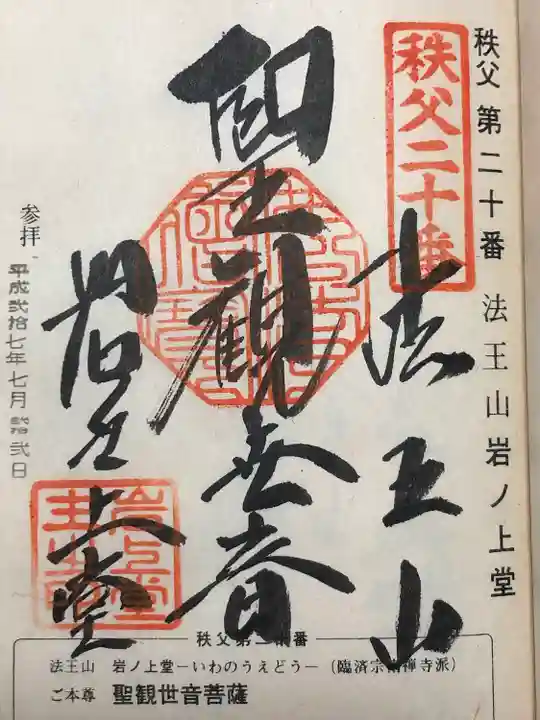 秩父第二十番 法王山岩ノ上堂
秩父二十番
法王山
聖観世音
岩之上堂
参拝 平成弐拾七年七月弐拾弐日
秩父第二十番
法王山 岩ノ上堂－いわのうえどう－（臨済宗南禅寺派）
ご本尊 聖観世音菩薩